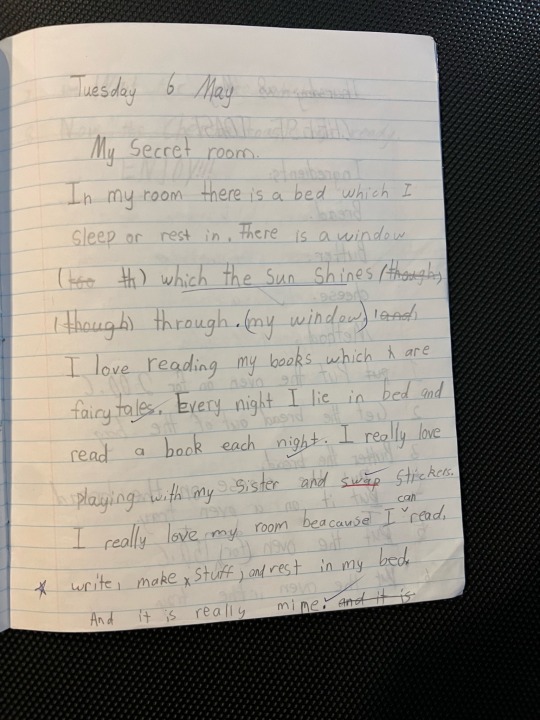 Tuesday 6 May
My Secret room.
In my room there is a bed which I
sleep or rest in. There is a window
(too th) which the sun shines (though)
(though) through. (my window) (and)
I love reading my books which are
fairytales. Every night I lie in bed and
read a book each night. I really love
playing with my sister and swap stickers.
I really love my room beacause I can read,
write, make stuff, and rest in my bed.
And it is really mine. and it is